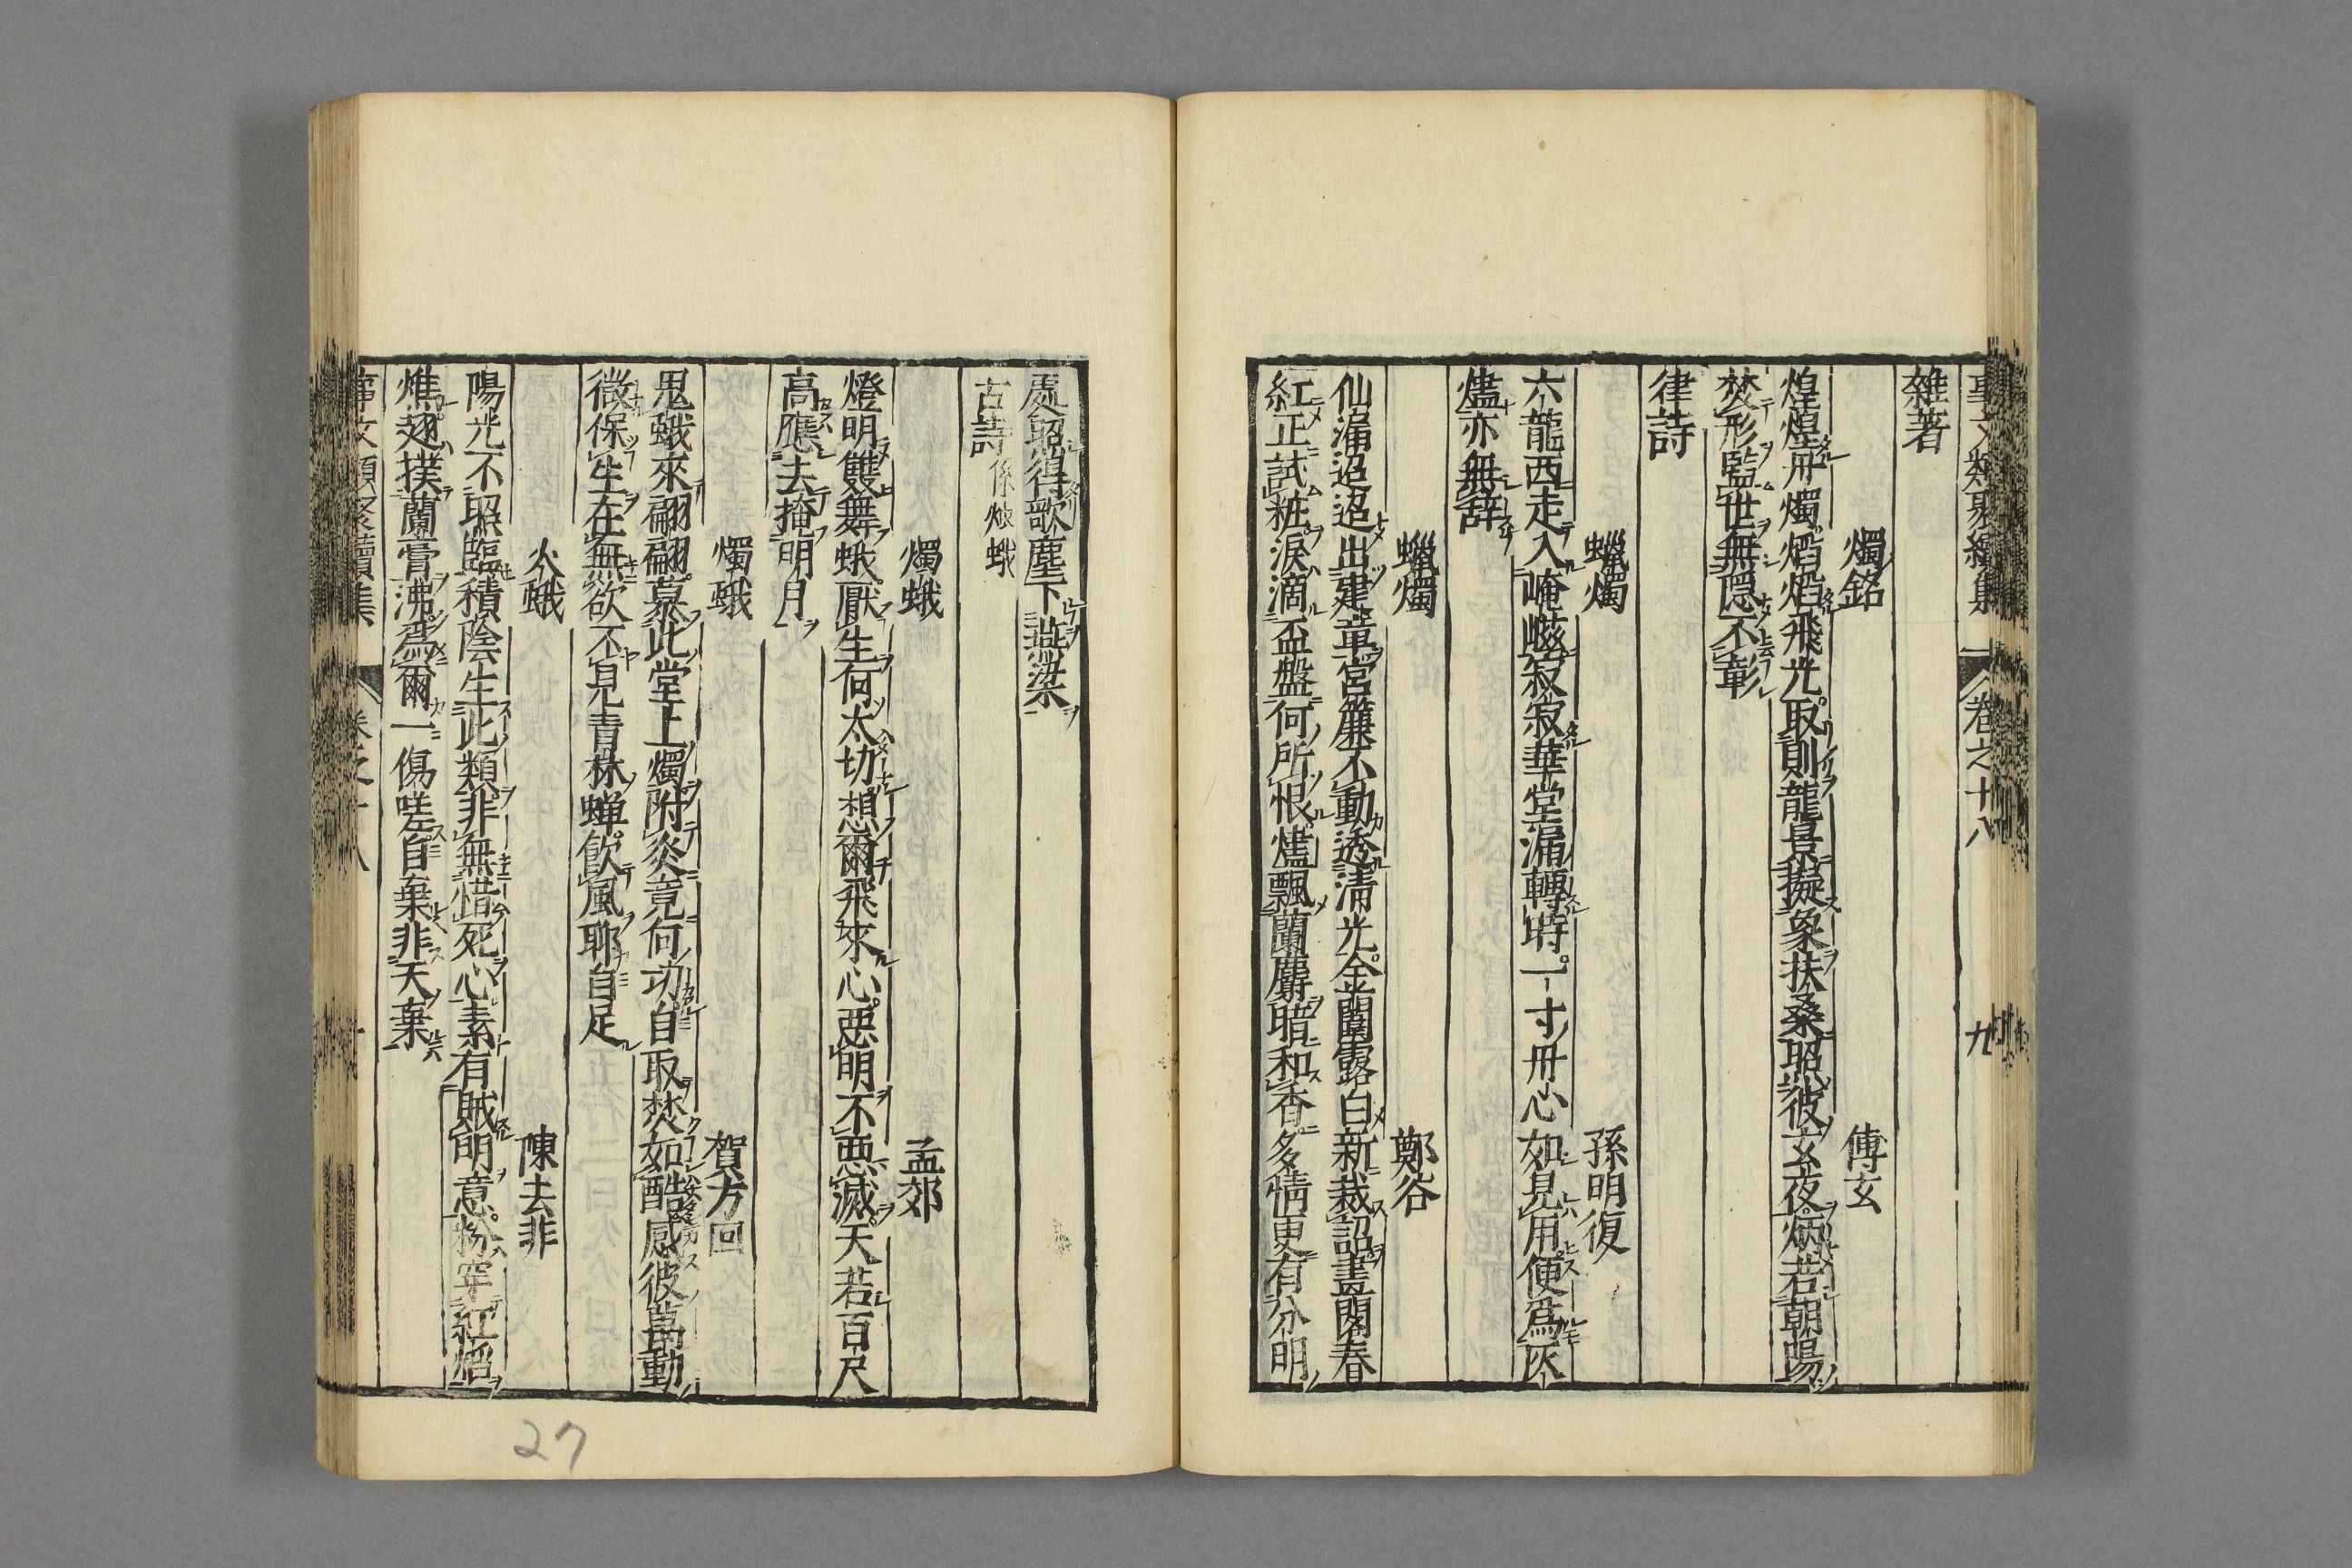 事文類聚續集 卷之十八 九
雜著
燭銘 傅玄
煌煌丹燭焰焰飛光取則龍景擬象扶桑照彼玄夜炳若朝陽
焚形監世無隱不彰
律詩
蠟燭 孫明復
六龍西走入崦嵫寂寂華堂漏轉時一寸丹心如見用便爲灰
燼亦無辭
蠟燭 鄭谷
仙漏迢迢出建章宮簾不動透清光金閨露白新裁詔畫閣春
紅正試粧淚滴盃盤何所恨燼飄蘭麝暗和香多情更有分明
處照得歌塵下燕梁
古詩 係燭蛾
燭蛾 孟郊
燈明雙舞蛾厭生何太切想爾飛來心惡明不惡滅天若百尺
高應去掩明月
燭蛾 賀方回
鬼蛾來翩翩慕此堂上燭附炎竟何功自取焚如酷感彼萬動
微保生在無欲不見青林蟬飲風聊自足
火蛾 陳去非
陽光不照臨積陰生此類非無惜死心素有賊明意粉穿紅焰
燋翅撲蘭膏沸爲爾一傷嗟自棄非天棄
事文類聚續集 卷之十八
27